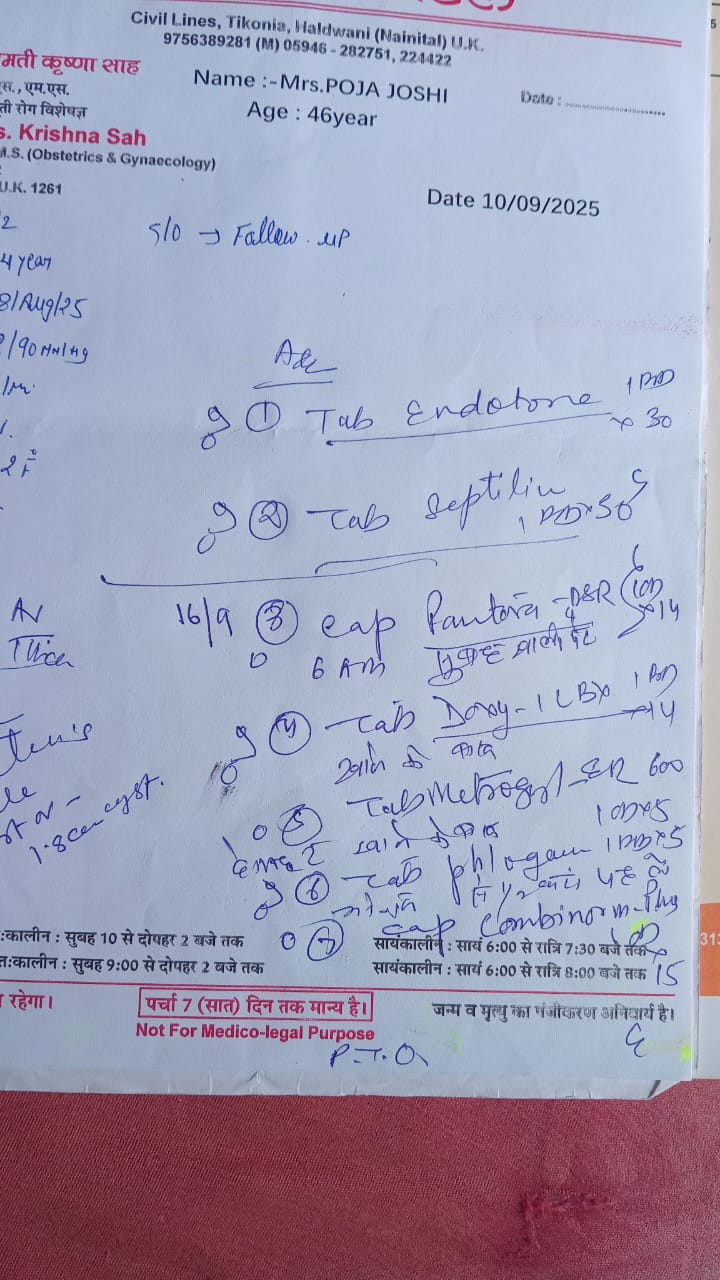 Civil Lines, Tikonia, Haldwani (Nainital) U.K.
9756389281 (M) 05946 - 282751, 224422
मती कृष्णा साह
स., एम.एस.
ती रोग विशेषज्ञ
s. Krishna Sah
M.S. (Obstetrics & Gynaecology)
U.K. 1261
Name :-Mrs.POJA JOSHI
Date :
Age : 46year
Date 10/09/2025
S/O → Follow. up
4 year
8/Aug/25
/90 MN/Hg
Adv
① Tab Endotone 1 BD
x 30
② Tab Septilin
1 BD x 30
16/9 ③ Cap Pantova-DSR 1 OD
x 14
6 AM सुबह खाली पेट
④ Tab Doxy-1 LBX 1 BD
x 14
खाने के बाद
⑤ Tab Metrogyl-ER 600
1 OD x 5
खाने के बाद
⑥ Tab phlogam 1 BD x 5
⑦ Cap Combinorm-Plus
15
1.8cm cyst.
:कालीन : सुबह 10 से दोपहर 2 बजे तक
सायंकालीन : सायं 6:00 से रात्रि 7:30 बजे तक
तःकालीन : सुबह 9:00 से दोपहर 2 बजे तक
सायंकालीन : सायं 6:00 से रात्रि 8:00 बजे तक
रहेगा।
पर्चा 7 (सात) दिन तक मान्य है।
जन्म व मृत्यु का पंजीकरण अनिवार्य है।
Not For Medico-legal Purpose
P.T.O
313